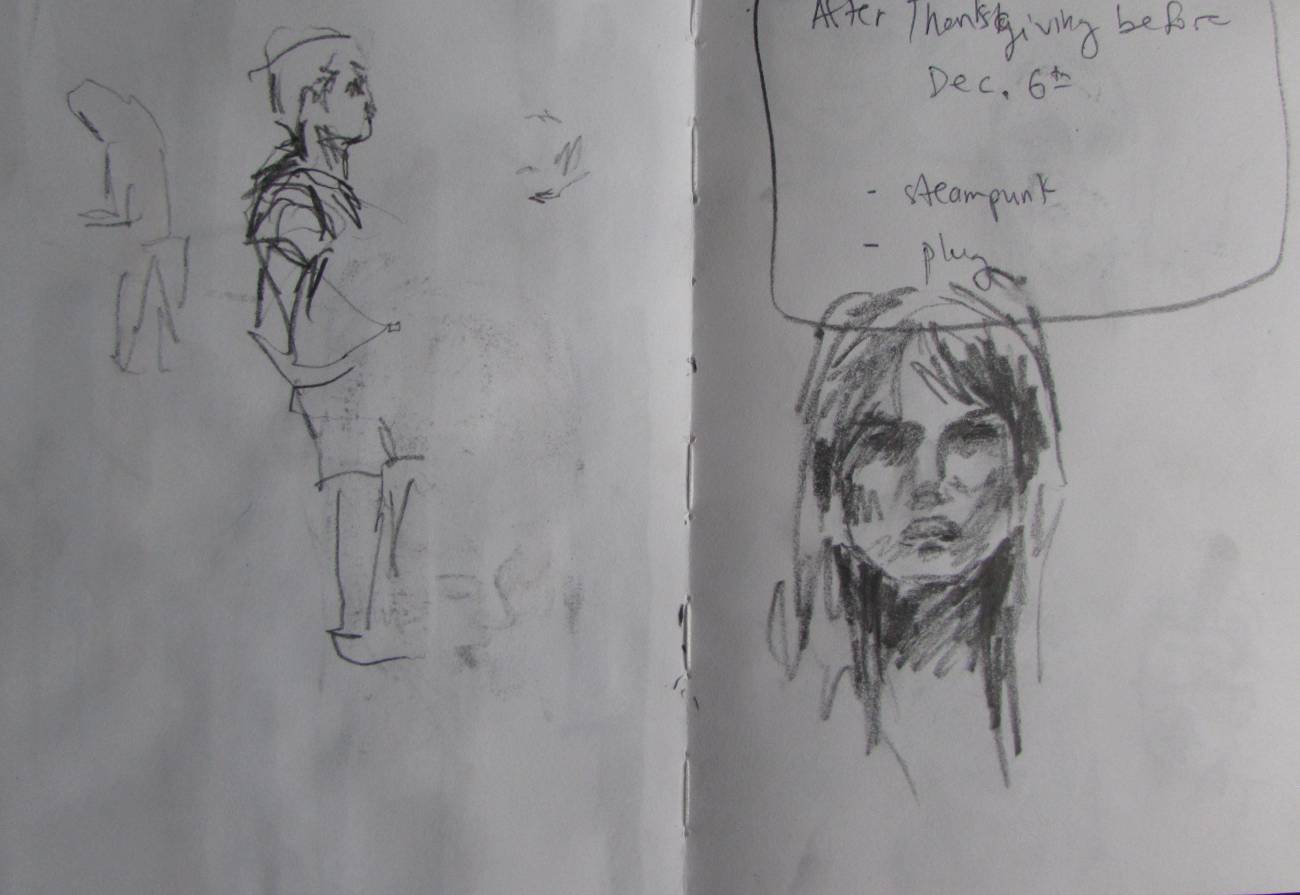 After Thanksgiving before
Dec. 6th
- steampunk
- plug